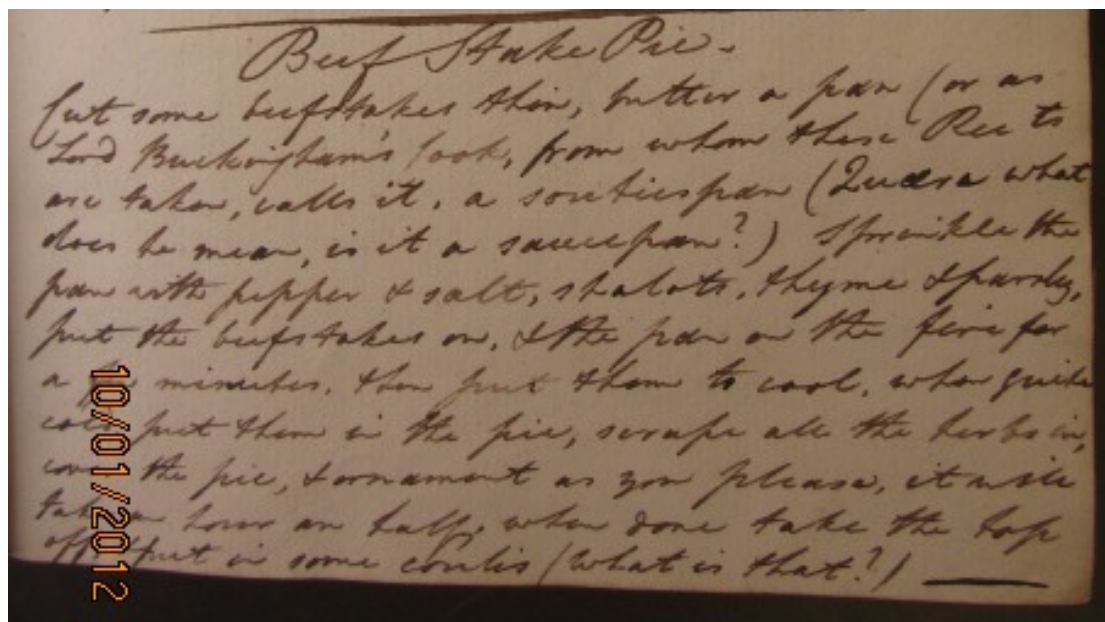 Beef Stake Pie.
Cut some beefstakes thin, butter a pan (or as
Lord Buckingham's Cook, from whom these Rects
are taken, calls it, a soutiespan (Quære what
does he mean, is it a saucepan?) Sprinkle the
pan with pepper & salt, shalots, thyme & parsley,
put the beefstakes on, & the pan on the fire for
a minutes, then put them to cool, when quite
cold put them in the pie, scrape all the herbs in,
cover the pie, & ornament as you please, it will
take an hour an half, when done take the top
off & put in some coulis (what is that?)
10/01/2012